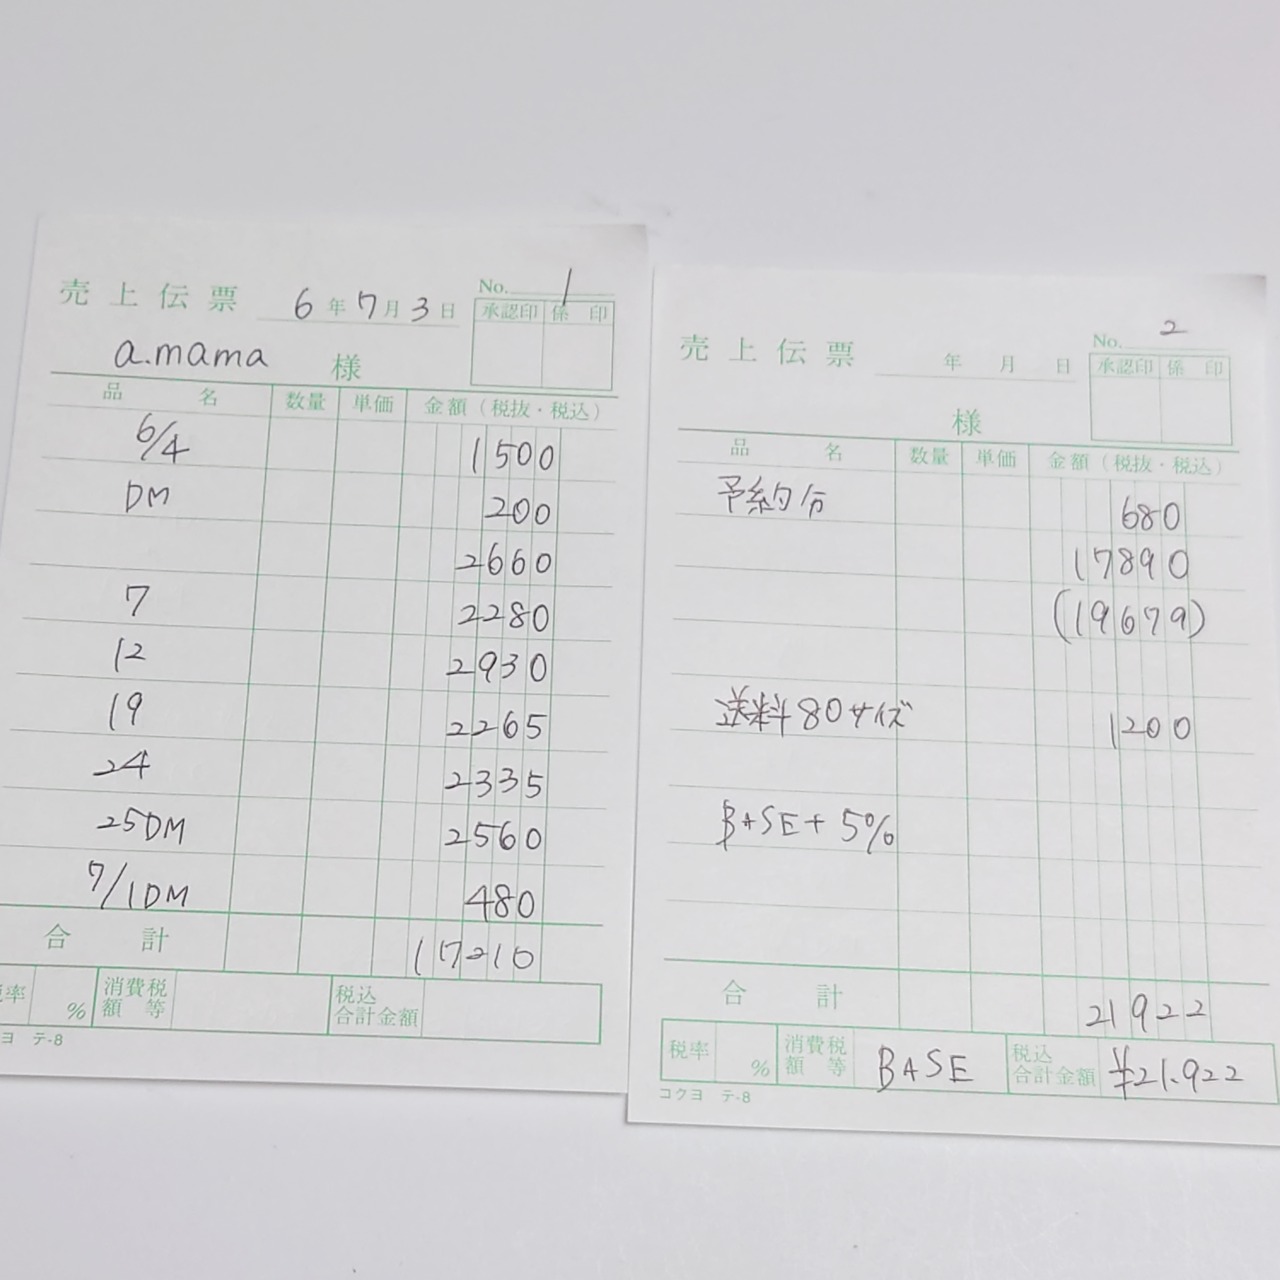 No. 1
売上伝票 6年7月3日
承認印 係印
a.mama 様
品名 数量 単価 金額(税抜・税込)
6/4 1500
DM 200
2660
7 2280
12 2930
19 2265
24 2335
25DM 2560
7/1DM 480
合計 17210
率 % 消費税額等 税込合計金額
ヨ テ-8
No. 2
売上伝票 年 月 日
承認印 係印
様
品名 数量 単価 金額(税抜・税込)
予約分 680
17890
(19679)
送料80サイズ 1200
BASE+5%
合計 21922
税率 % 消費税額等 BASE 税込合計金額 ¥21.922
コクヨ テ-8